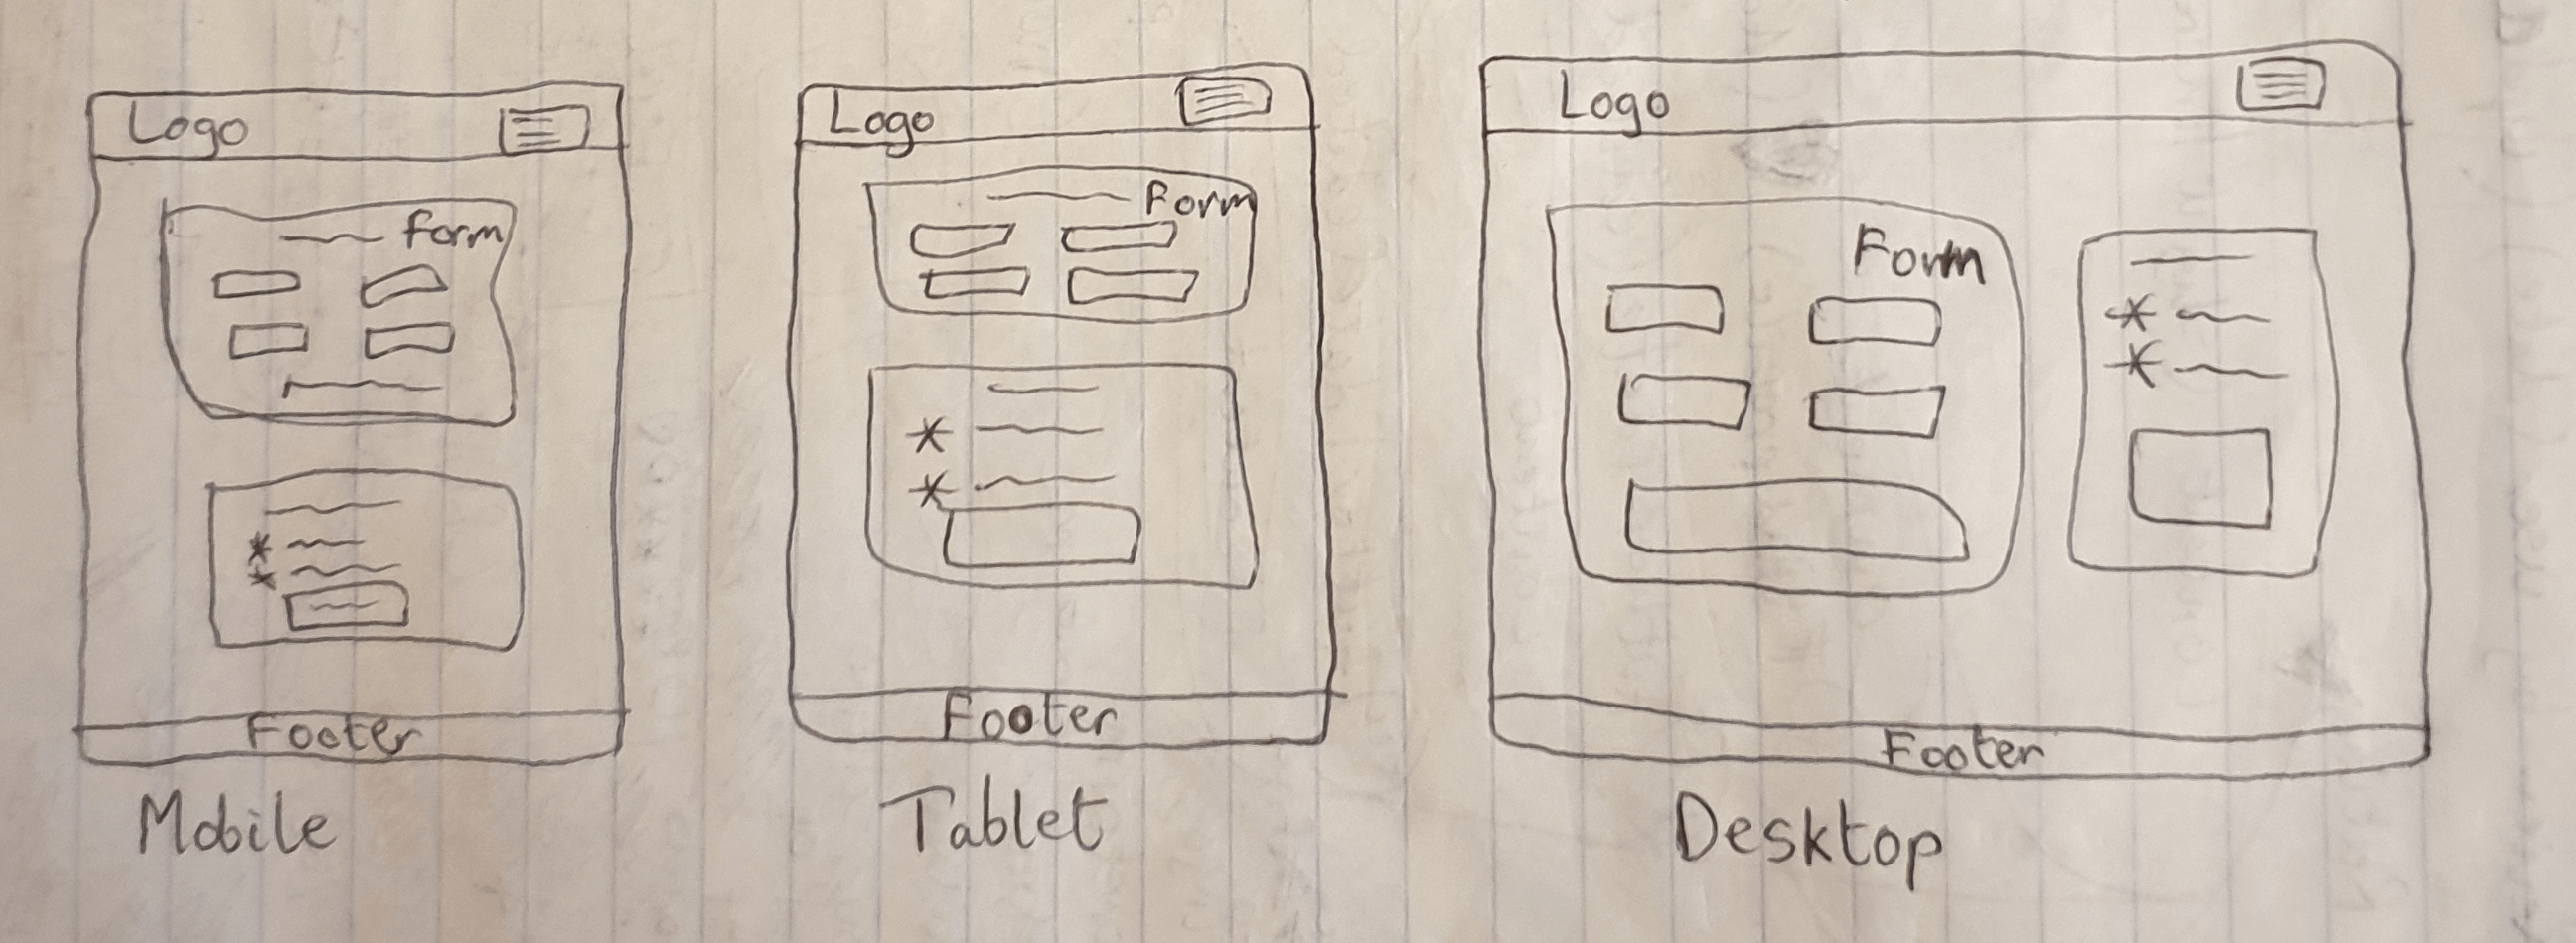 Logo
Form
Footer
Mobile
Logo
Form
* 
*
Footer
Tablet
Logo
Form
*
*
Footer
Desktop